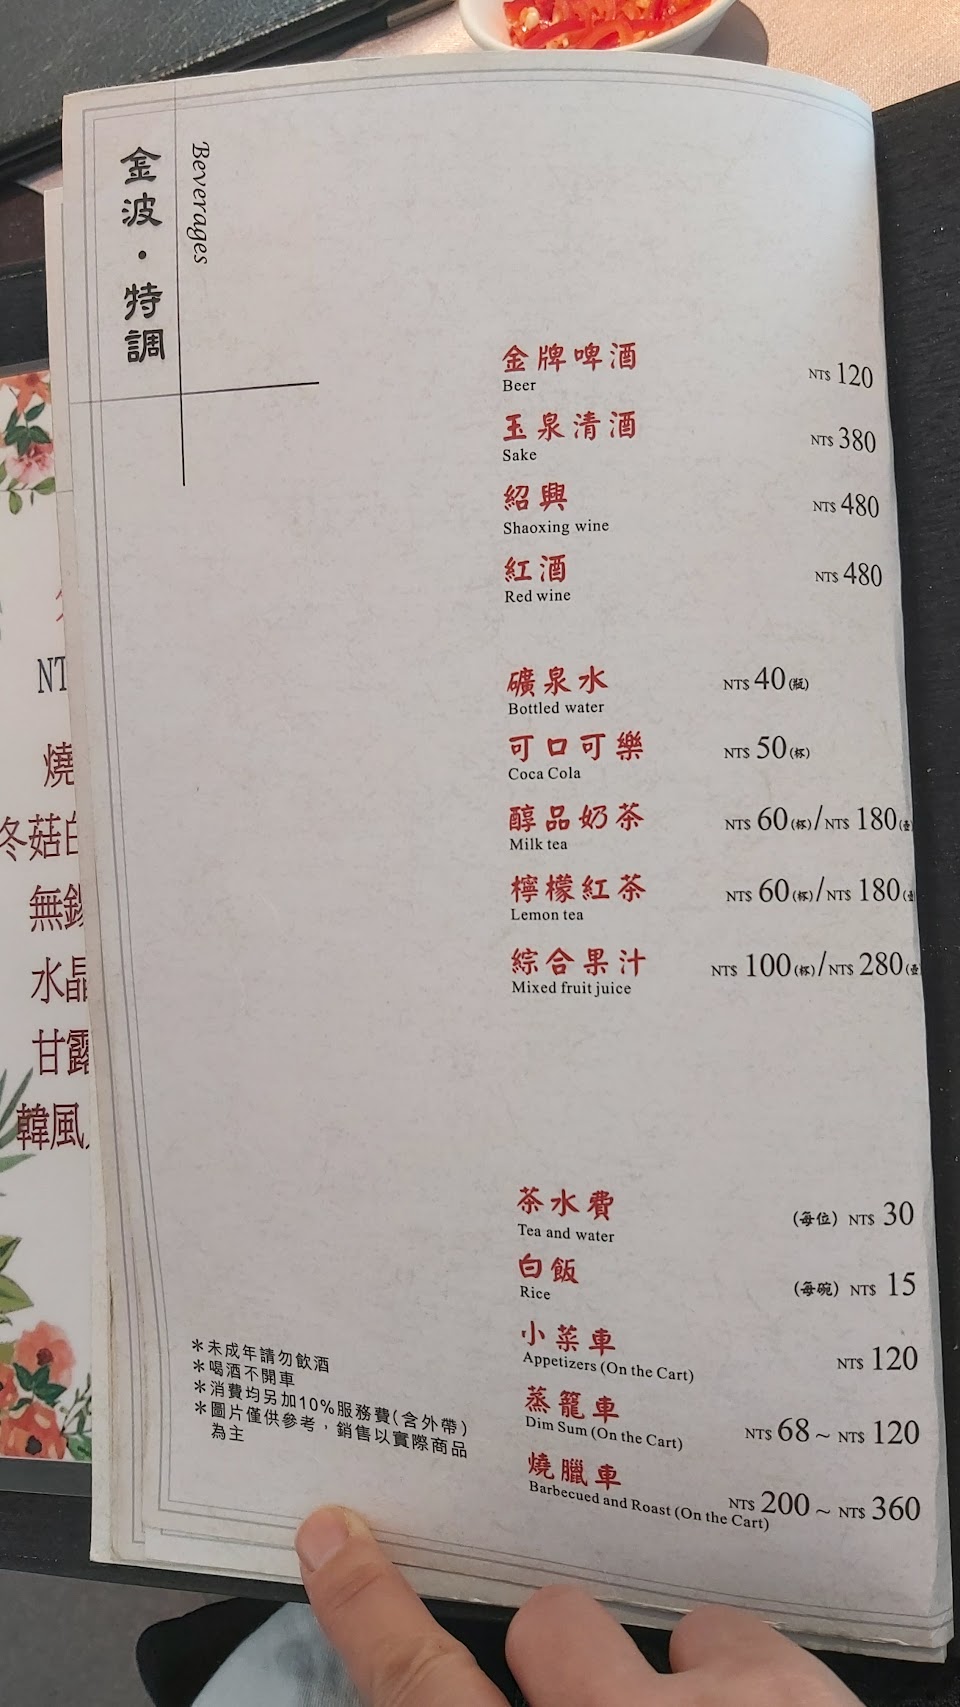 金波・特調
Beverages
金牌啤酒 NT$ 120
Beer
玉泉清酒 NT$ 380
Sake
紹興 NT$ 480
Shaoxing wine
紅酒 NT$ 480
Red wine
礦泉水 NT$ 40(瓶)
Bottled water
可口可樂 NT$ 50(杯)
Coca Cola
醇品奶茶 NT$ 60(杯)/NT$ 180(壺)
Milk tea
檸檬紅茶 NT$ 60(杯)/NT$ 180(壺
Lemon tea
綜合果汁 NT$ 100(杯)/NT$ 280(壺
Mixed fruit juice
茶水費 (每位) NT$ 30
Tea and water
白飯 (每碗) NT$ 15
Rice
小菜車 NT$ 120
Appetizers (On the Cart)
蒸籠車 NT$ 68 ~ NT$ 120
Dim Sum (On the Cart)
燒臘車 NT$ 200 ~ NT$ 360
Barbecued and Roast (On the Cart)
＊未成年請勿飲酒
＊喝酒不開車
＊消費均另加10%服務費(含外帶)
＊圖片僅供參考，銷售以實際商品
為主
NT
燒
冬菇
無錫
水晶
甘露
韓風